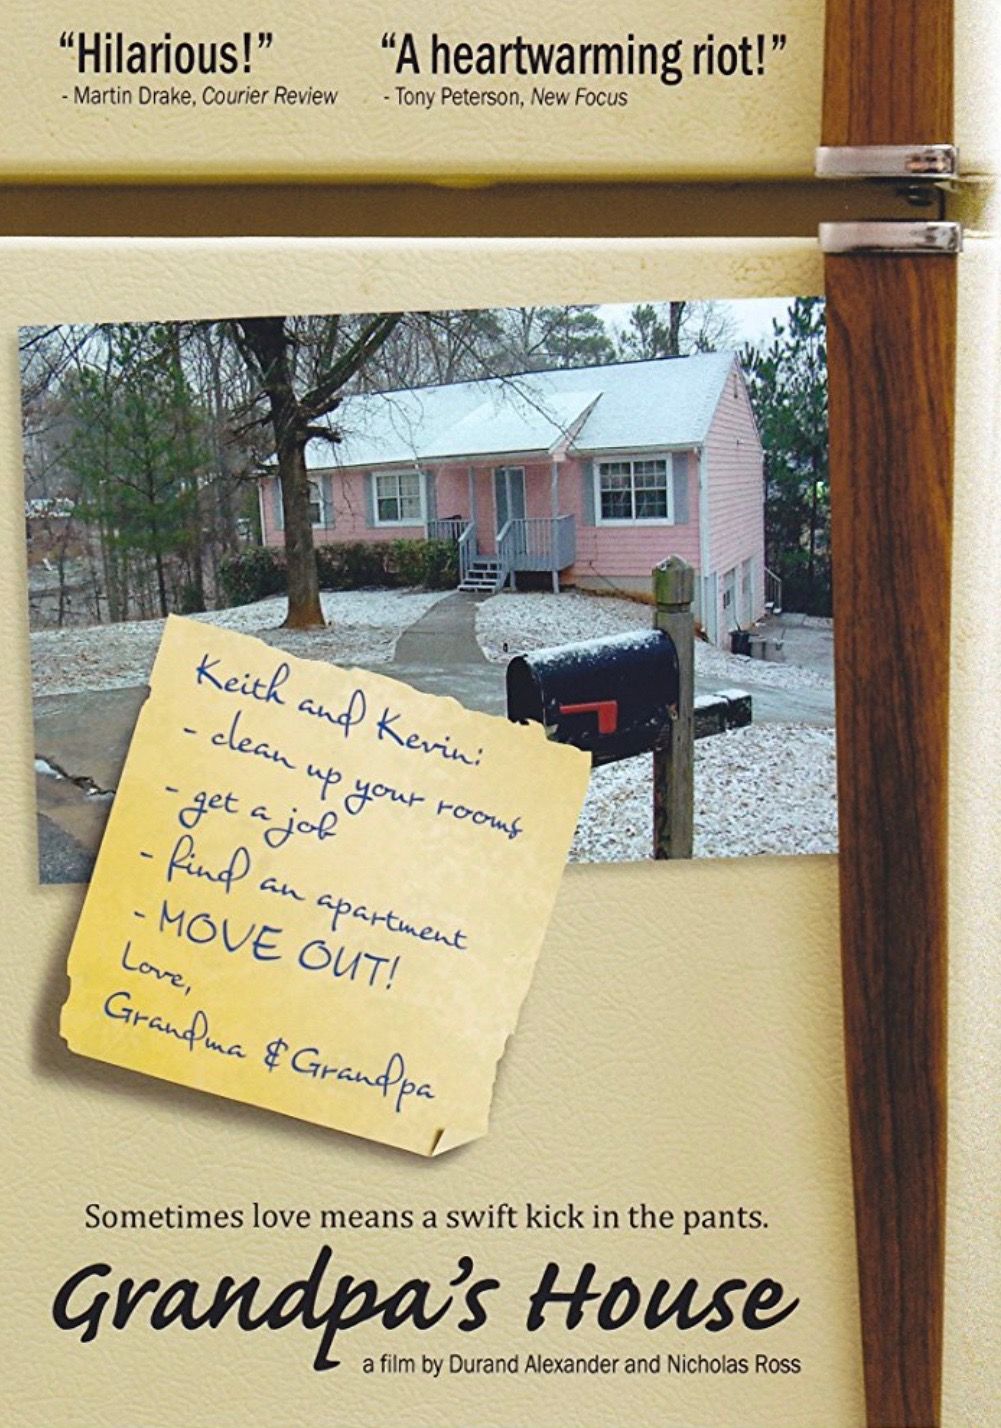 “Hilarious!” “A heartwarming riot!”
- Martin Drake, Courier Review - Tony Peterson, New Focus
Keith and Kevin:
- clean up your rooms
- get a job
- find an apartment
- MOVE OUT!
Love,
Grandma & Grandpa
Sometimes love means a swift kick in the pants.
Grandpa’s House
a film by Durand Alexander and Nicholas Ross